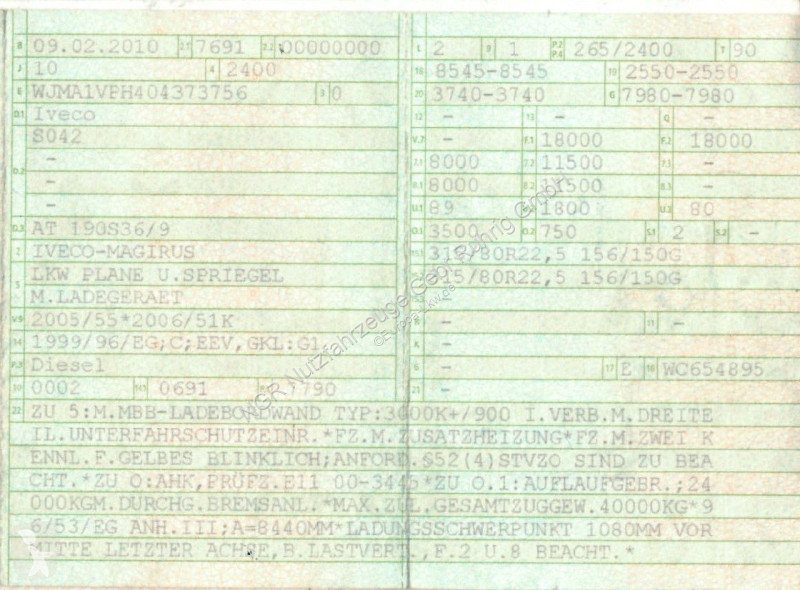 B 09.02.2010 2.1 7691 2.2 00000000
J 10 4 2400
E WJMA1VPH404373756 3 0
D.1 Iveco
S042
-
D.2 -
-
D.3 AT 190S36/9
2 IVECO-MAGIRUS
LKW PLANE U.SPRIEGEL
5 M.LADEGERAET
V.9 2005/55*2006/51K
14 1999/96/EG;C;EEV,GKL:G1
P.3 Diesel
10 0002 14.1 0691 P.1 7790
L 2 9 1 P.2 P.4 265/2400 T 90
18 8545-8545 19 2550-2550
20 3740-3740 G 7980-7980
12 - 13 - Q -
V.7 - F.1 18000 F.2 18000
7.1 8000 7.2 11500 7.3 -
8.1 8000 8.2 11500 8.3 -
U.1 89 U.2 1800 U.3 80
O.1 3500 O.2 750 S.1 2 S.2 -
15.1 315/80R22,5 156/150G
15.2 315/80R22,5 156/150G
R - 11 -
K -
6 - 17 E 16 WC654895
21 -
22 ZU 5:M.MBB-LADEBORDWAND TYP:3000K+/900 I.VERB.M.DREITE
IL.UNTERFAHRSCHUTZEINR.*FZ.M.ZUSATZHEIZUNG*FZ.M.ZWEI K
ENNL.F.GELBES BLINKLICH;ANFORD.§52(4)STVZO SIND ZU BEA
CHT.*ZU O:AHK,PRÜFZ.E11 00-3446*ZU O.1:AUFLAUFGEBR.;24
000KGM.DURCHG.BREMSANL.*MAX.ZUL.GESAMTZUGGEW.40000KG*9
6/53/EG ANH.III;A=8440MM*LADUNGSSCHWERPUNKT 1080MM VOR
MITTE LETZTER ACHSE,B.LASTVERT.,F.2 U.8 BEACHT.*
KGR Nutzfahrzeuge Gebr. Ruhrig GmbH